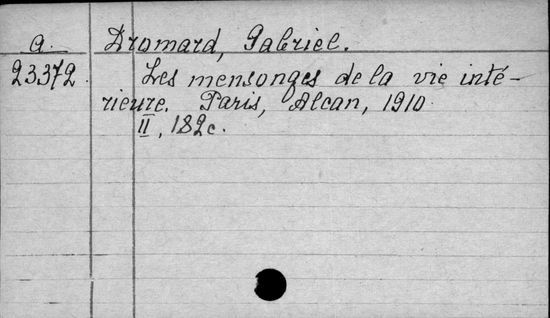 a. Dromard, Gabriel.
23372. Les mensonges de la vie inté-
rieure. Paris, Alcan, 1910.
II, 182c.